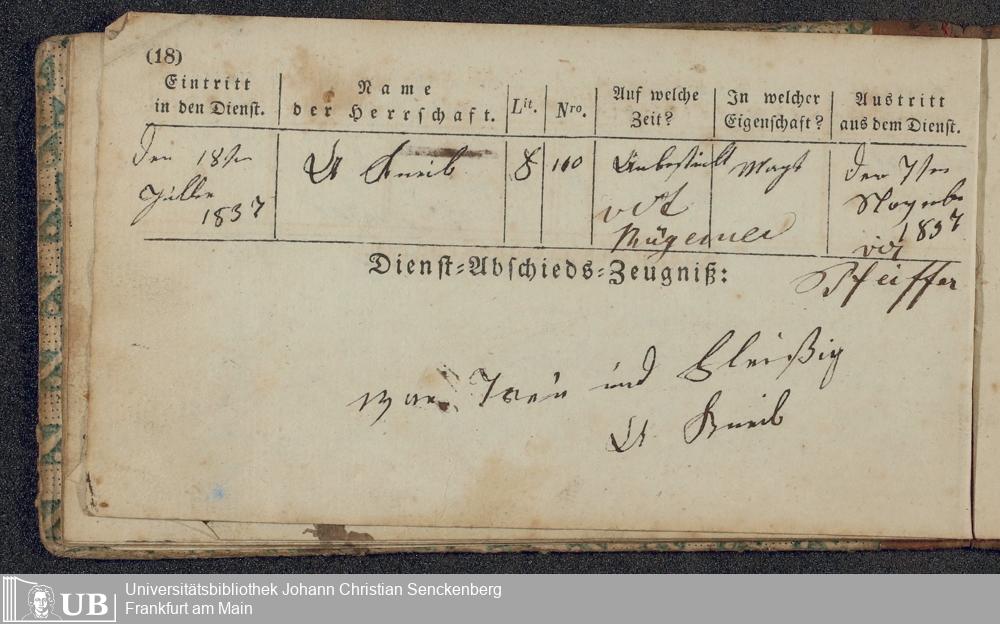 (18)
Eintritt
in den Dienst.
Name
der Herrschaft.
Lit.
Nro.
Auf welche
Zeit?
In welcher
Eigenschaft?
Austritt
aus dem Dienst.
den 18ten
Jully
1837
A Kneib
110
Unbestimt
vdt
Magt
den 7ten
Novemb
1837
vdt
Pfeiffer
Dienst-Abschieds-Zeugniß:
war Treu und Fleißig
A Kneib
Universitätsbibliothek Johann Christian Senckenberg
Frankfurt am Main
UB